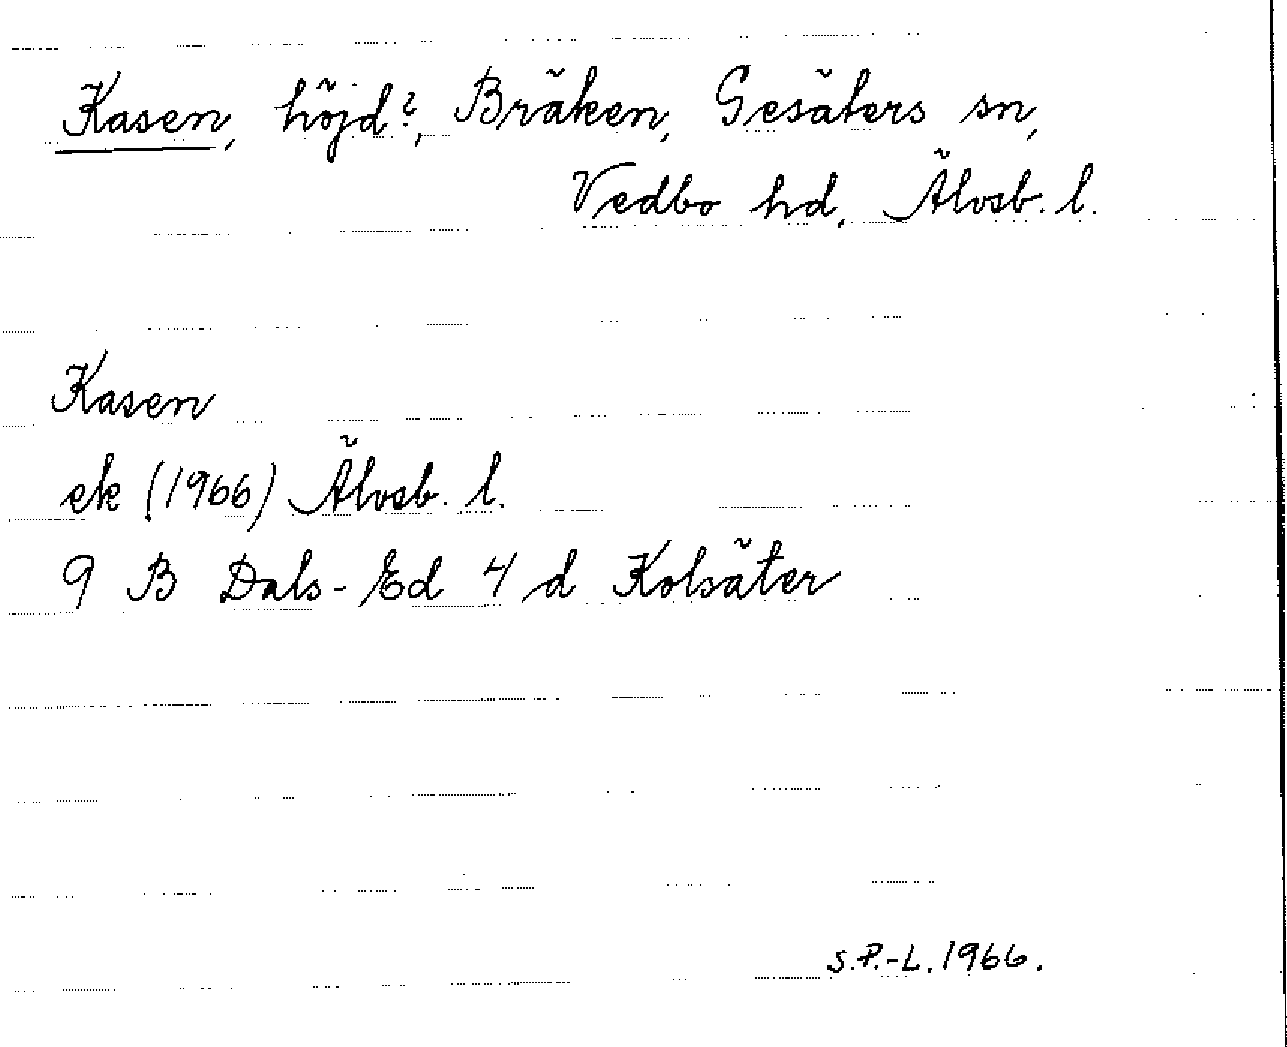 Kasen, höjd?, Bräken, Gesäters sn,
Vedbo hd, Älvsb. l.
Kasen
ek (1966) Älvsb. l.
9 B Dals-Ed 4 d Kolsäter
S.P.-L. 1966.